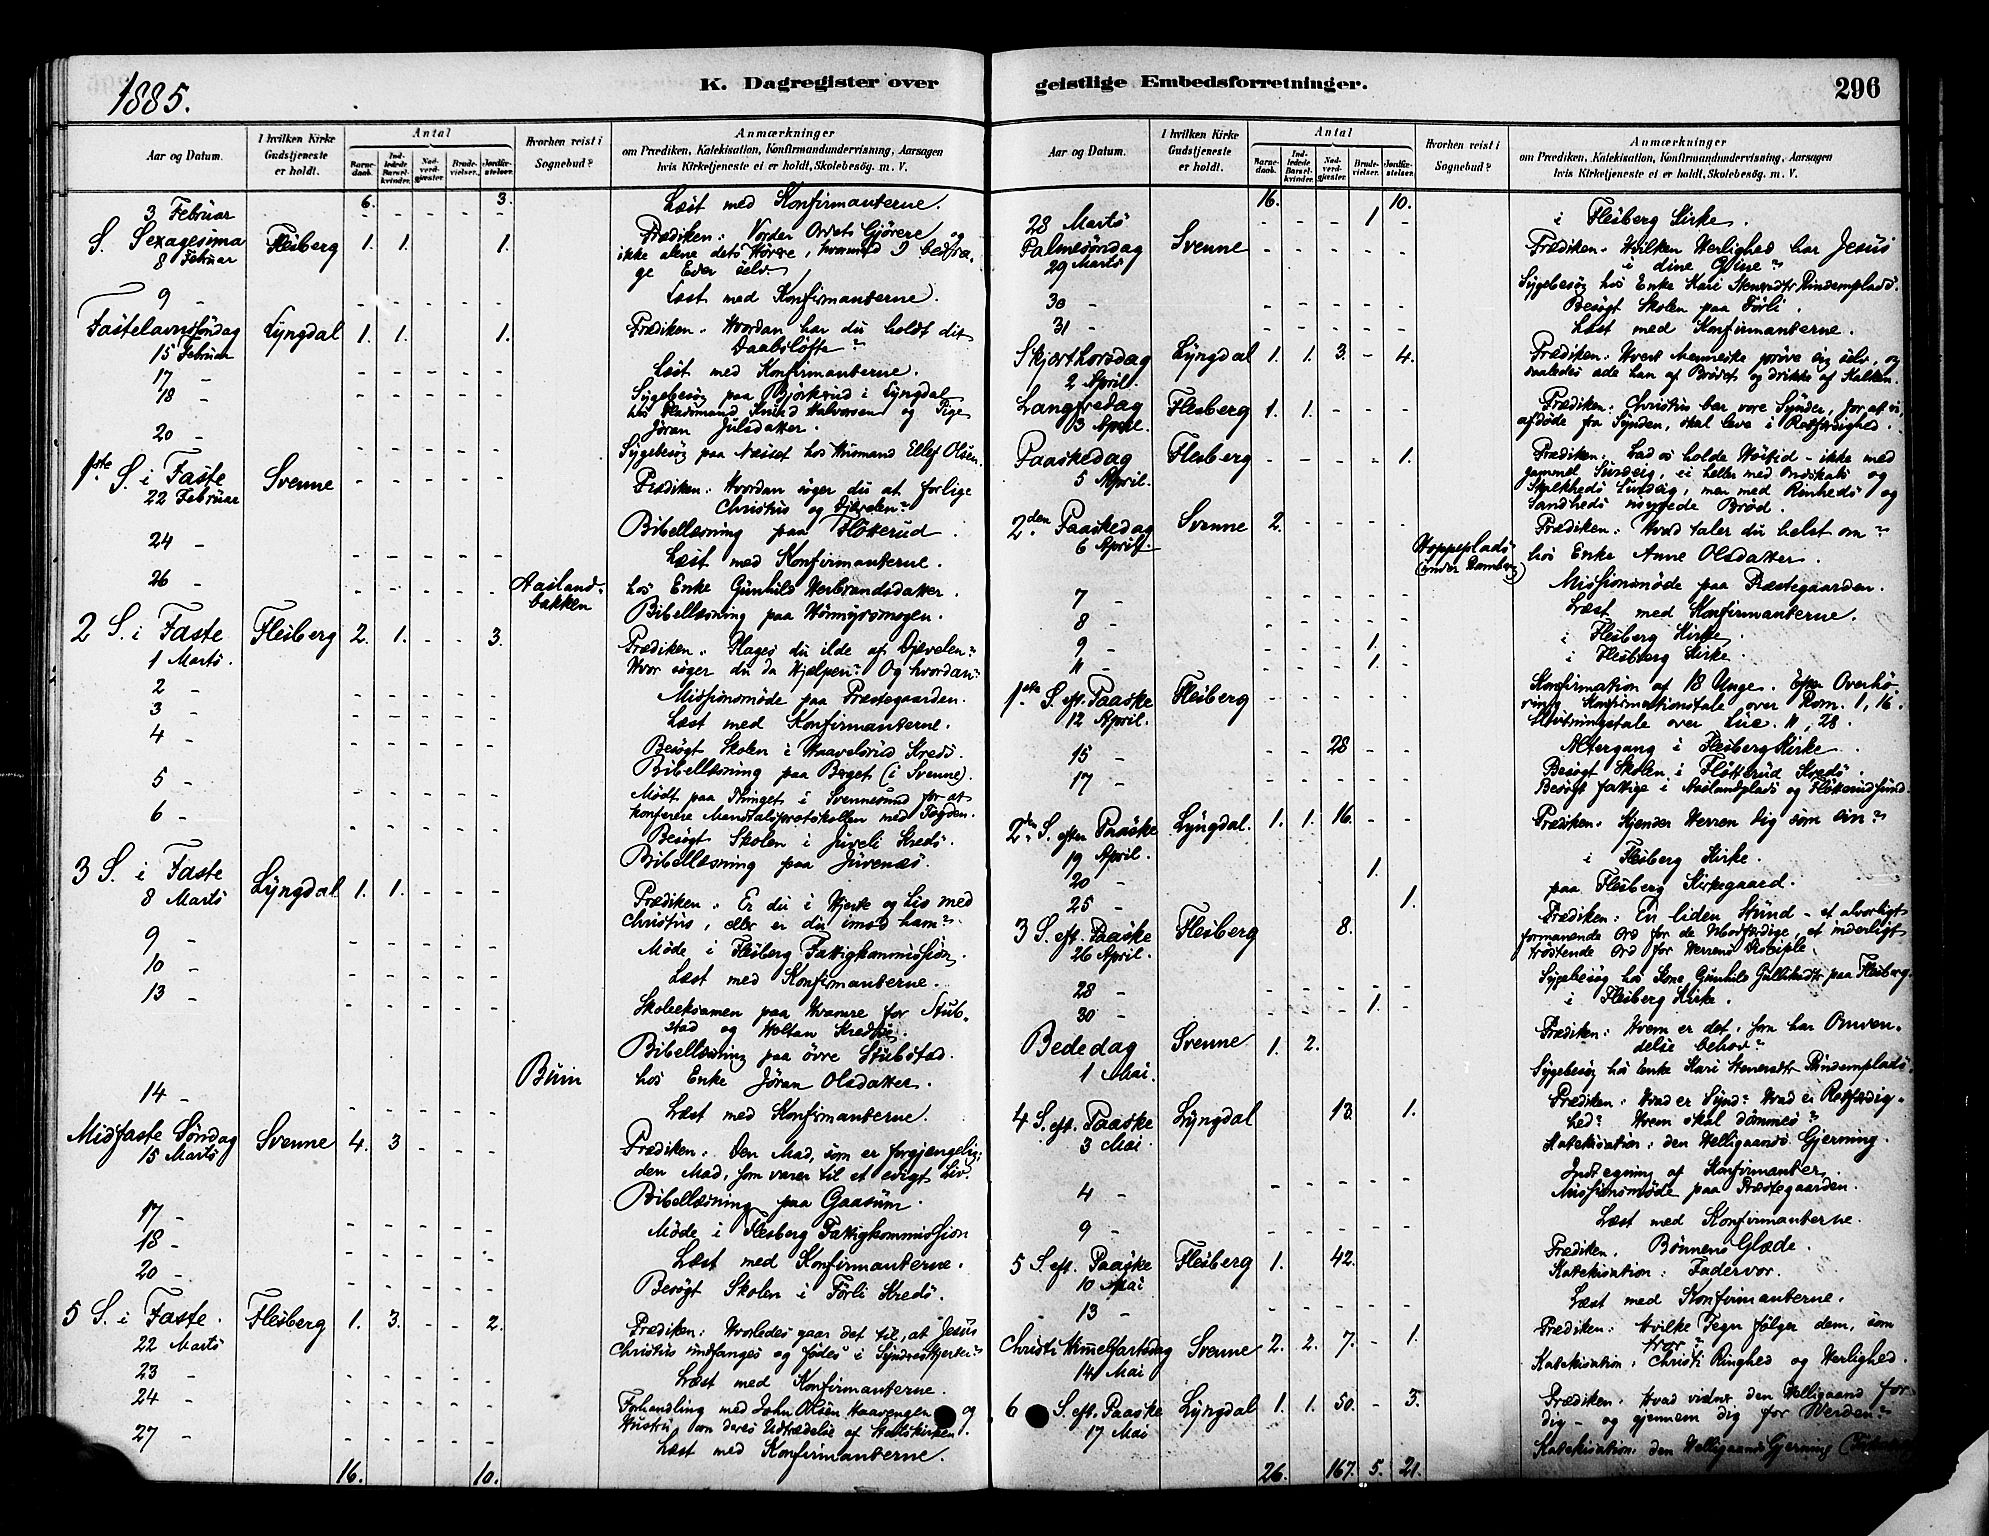 1885.
K. Dagregister over
Aar og Datum.
I hvilken Kirke Gudstjeneste er holdt.
Antal
Barnedaab.
Indledede Barselkvinder.
Nadverdgjæster.
Brudevielser.
Jordfæstelser.
Hvorhen reist i Sognebud?
Anmærkninger
om Prædiken, Katekisation, Konfirmandundervisning, Aarsagen
hvis Kirketjeneste ei er holdt, Skolebesøg. m. V.
6. 3.
3 Februar - - - - - Læst med Konfirmanterne.
S. Sexagesima Flesberg 1. 1. 1. Prædiken: Vorder Ordets Gjørere og
8 Februar ikke alene dets Hørere, hvormed I bedra-
ge Eder selv
9 - - - - - - Læst med Konfirmanterne.
Fastelavnssøndag Lyngdal 1. 1. 1. Prædiken: Hvordan har du holdt dit
15 Februar Daabsløfte?
17 - - - - - - Læst med Konfirmanterne.
18 - - - - - - Sygebesøg paa Bjørkerud i Lyngdal
hos Pladsmand Knud Halvorsen og Pige
Jøran Julsdatter.
20 - - - - - - Sygebesøg paa Næset hos Husmand Ellef Olsen.
1ste S. i Faste Svenne - - - - - Prædiken: Hvordan søger du at forlige
22 Februar Christus og Djævelen?
Bibellæsning paa Fløtterud.
24 - - - - - - Læst med Konfirmanterne.
26 - - - - - - Aaslandbakken hos Enke Gunhild Herbrandsdatter.
Bibellæsning paa Hønmyrsmogen.
2 S. i Faste Flesberg 2. 1. - - 3. Prædiken: Plages du ilde af Djævelen?
1 Marts. Hvor søger du da Hjælpen? Og hvordan?
2 - - - - - - Missionsmøde paa Præstegaarden.
3 - - - - - - Læst med Konfirmanterne.
4 - - - - - - Besøgt Skolen i Haavelsrud Kreds.
Bibellæsning paa Berget (i Svenne).
5 - - - - - - Mødt paa Thinget i Svennesund for at
konferere Mandtalsprotokollen med Fogden.
6 - - - - - - Besøgt Skolen i Juveli Kreds.
Bibellæsning paa Juvenæs.
3 S. i Faste Lyngdal 1. 1. - - - Prædiken: Er du i Hjerte og Liv med
8 Marts Christus, eller er du imod ham?
9 - - - - - - Møde i Flesberg Fattigkommission.
10 - - - - - - Læst med Konfirmanterne.
13 - - - - - - Skoleeksamen paa Hvamre for Stub-
stad og Holtan Kredse.
Bibellæsning paa øvre Stubstad.
Buin hos Enke Jøran Olsdatter.
14 - - - - - - Læst med Konfirmanterne.
Midfaste Søndag Svenne 4. 3 - - - Prædiken: Den Mad, som er forgjængelig;
15 Marts den Mad, som varer til et evigt Liv.
Bibellæsning paa Gaasum.
17 - - - - - - Møde i Flesberg Fattigkommission
18 - - - - - - Læst med Konfirmanterne.
20 - - - - - - Besøgt Skolen i Førli Kreds.
5 S. i Faste. Flesberg 1. 3. - - 2. Prædiken: Hvorledes gaar det til, at Jesus
22 Marts Christus undfanges og fødes i Synderes Hjerter?
23 - - - - - - Læst med Konfirmanterne.
24 - - - - - - Forhandling med John Olsen Haavengen og
Hustru om deres Udtrædelse af Statskirken.
27 - - - - - - Læst med Konfirmanterne.
16. 10.
geistlige Embedsforretninger.
296
Aar og Datum.
I hvilken Kirke Gudstjeneste er holdt.
Antal
Barnedaab.
Indledede Barselkvinder.
Nadverdgjæster.
Brudevielser.
Jordfæstelser.
Hvorhen reist i Sognebud?
Anmærkninger
om Prædiken, Katekisation, Konfirmandundervisning, Aarsagen
hvis Kirketjeneste ei er holdt, Skolebesøg. m. V.
16. 10.
28 Marts - - - 1 - i Flesberg Kirke.
Palmesøndag Svenne - - - - - Prædiken: Hvilken Herlighed har Jesus
29 Marts i dine Øine?
30 - - - - - - Sygebesøg hos Enke Kari Stensrdtr Rindemplads.
Besøgt Skolen paa Førli.
31 - - - - - - Læst med Konfirmanterne.
Skjærthorsdag Lyngdal 1. 1. 3. - 4. Prædiken: Hvert Menneske prøve sig selv, og
2 April. saaledes æde han af Brødet og drikke af Kalken.
Langfredag Flesberg 1. 1. - - - Prædiken: Christus bar vore Synder, for at vi,
3 April. afdøde fra Synden, skal leve i Retfærdighed.
Paaskedag Flesberg - - - - 1. Prædiken: Lad os holde Høitid - ikke med
5 April. gammel Surdeig, ei heller med Ondskabs og
Skalkheds Surdeig, men med Renheds og
Sandheds usyrede Brød.
2den Paaskedag Svenne 2. - - - - Prædiken: Hvad taler du helst om?
6 April. Hoppeplads (under Damberg) hos Enke Anne Olsdatter.
7 - - - - - - Missionsmøde paa Præstegaarden.
8 - - - - - - Læst med Konfirmanterne.
9 - - - - 1. - i Flesberg Kirke.
11 - - - - 1. - i Flesberg Kirke.
1ste S. eft. Paaske Flesberg - - - - - Konfirmation af 18 Unge. Efter Overhø-
12 April. ring Konfirmationstale over Rom. 1, 16.
Slutningstale over Luc. 11, 28.
15 - - - 28 - - Altergang i Flesberg Kirke.
17 - - - - - - Besøgt Skolen i Fløtterud Kreds.
Besøgt fattige i Aaslandplads og Fløtterudsund.
2den S. efter Paaske Lyngdal. 1. 1. 16. - - Prædiken: Kjender Herren dig som sin?
19 April.
20 - 1. i Flesberg Kirke.
25 - 1. paa Flesberg Kirkegaard.
3 S. eft. Paaske Flesberg 8. Prædiken: En liden Stund - et alvorligt
26 April. formanende Ord for de Modfærdige, et inderligt
trøstende Ord for Herrens Disciple.
28 - - - - - - Sygebesøg hos Kone Gunhild Gulliksdtr paa Flesberg.
30 - - - - 1. - i Flesberg Kirke.
Bededag Svenne 1. 2. Prædiken: Hvem er det, som har Omven-
1 Mai. delse behov?
Sygebesøg hos Enke Kari Stensrdtr Rindemplads.
4 S. eft. Paaske Lyngdal 13. 1. Prædiken: Hvad er Synd? Hvad er Retfærdig-
3 Mai hed? Hvem skal dømmes?
Katekisation: den Helligaands Gjerning.
Indtegning af Konfirmanter.
4 - - - - - - Missionsmøde paa Præstegaarden.
9 - - - - - - Læst med Konfirmanterne.
5 S. eft. Paaske Flesberg 1. 42. Prædiken. Bønnens Glæde.
10 Mai Katekisation: Fadervor.
13 - - - - - - Læst med Konfirmanterne.
Christi Himmelfartsdag Svenne 2. 2. 7. - 1. Prædiken: Hvilke Tegn følger dem, som
14 Mai tror?
Katekisation: Christi Ringhed og Herlighed.
6 S. eft. Paaske Lyngdal 1. 1. 50. - 3. Prædiken: Hvad vidner den Helligaand for
17 Mai dig - og gjennem dig for Verden?
Katekisation: den Helligaands Gjerning
26. 167. 5. 21.